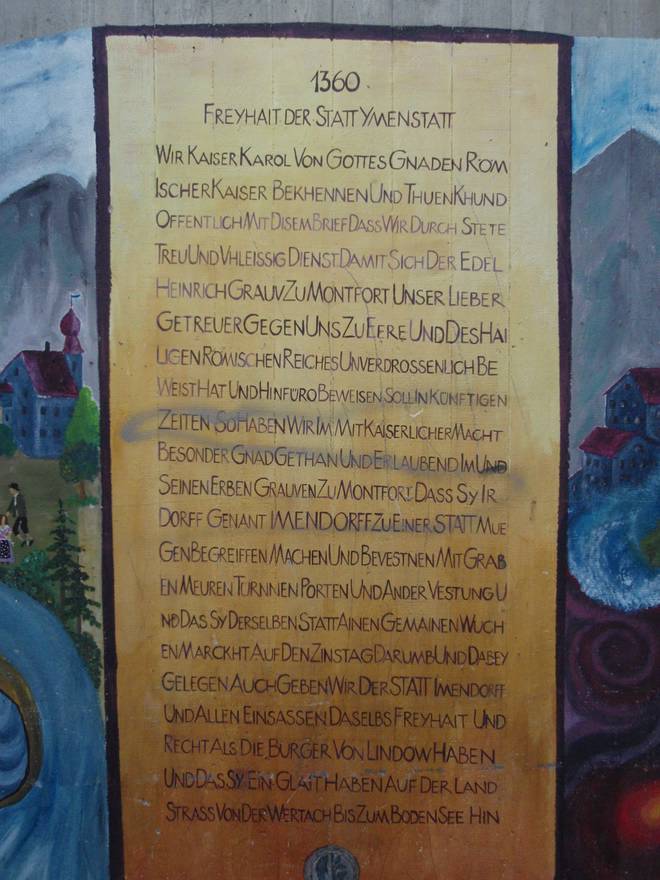 1360
FREYHAIT DER STATT YMENSTATT
WIR KAISER KAROL VON GOTTES GNADEN ROM
ISCHER KAISER BEKHENNEN UND THUEN KHUND
OFFENTLICH MIT DISEM BRIEF DASS WIR DURCH STETE
TREU UND VHLEISSIG DIENST DAMIT SICH DER EDEL
HEINRICH GRAUV ZU MONTFORT UNSER LIEBER
GETREUER GEGEN UNS ZU EERE UND DES HAI
LIGEN RÖMISCHEN REICHES UNVERDROSSENLICH BE
WEIST HAT UND HINFÜRO BEWEISEN SOLL IN KÜNFTIGEN
ZEITEN SO HABEN WIR IM MIT KAISERLICHER MACHT
BESONDER GNAD GETHAN UND ERLAUBEND IM UND
SEINEN ERBEN GRAUVEN ZU MONTFORT DASS SY IR
DORFF GENANT IMENDORFF ZU EINER STATT MUE
GEN BEGREIFFEN MACHEN UND BEVESTNEN MIT GRAB
EN MEUREN TURNNEN PORTEN UND ANDER VESTUNG U
ND DAS SY DERSELBEN STATT AINEN GEMAINEN WUCH
EN MARCKHT AUF DEN ZINSTAG DARUMB UND DABEY
GELEGEN AUCH GEBEN WIR DER STATT IMENDORFF
UND ALLEN EINSASSEN DASELBS FREYHAIT UND
RECHT ALS DIE BURGER VON LINDOW HABEN
UND DAS SY EIN GLAIT HABEN AUF DER LAND
STRASS VON DER WERTACH BIS ZUM BODENSEE HIN